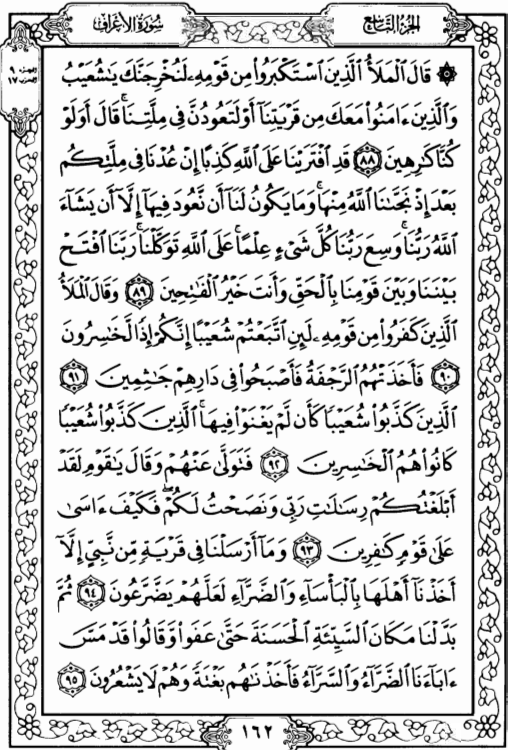 الجزء التاسع
سورة الأعراف
۞ قَالَ ٱلْمَلَأُ ٱلَّذِينَ ٱسْتَكْبَرُوا۟ مِن قَوْمِهِۦ لَنُخْرِجَنَّكَ يَـٰشُعَيْبُ
وَٱلَّذِينَ ءَامَنُوا۟ مَعَكَ مِن قَرْيَتِنَآ أَوْ لَتَعُودُنَّ فِى مِلَّتِنَا ۚ قَالَ أَوَلَوْ
كُنَّا كَـٰرِهِينَ ٨٨ قَدِ ٱفْتَرَيْنَا عَلَى ٱللَّهِ كَذِبًا إِنْ عُدْنَا فِى مِلَّتِكُم
بَعْدَ إِذْ نَجَّىٰنَا ٱللَّهُ مِنْهَا ۚ وَمَا يَكُونُ لَنَآ أَن نَّعُودَ فِيهَآ إِلَّآ أَن يَشَآءَ
ٱللَّهُ رَبُّنَا ۚ وَسِعَ رَبُّنَا كُلَّ شَىْءٍ عِلْمًا ۚ عَلَى ٱللَّهِ تَوَكَّلْنَا ۚ رَبَّنَا ٱفْتَحْ
بَيْنَنَا وَبَيْنَ قَوْمِنَا بِٱلْحَقِّ وَأَنتَ خَيْرُ ٱلْفَـٰتِحِينَ ٨٩ وَقَالَ ٱلْمَلَأُ
ٱلَّذِينَ كَفَرُوا۟ مِن قَوْمِهِۦ لَئِنِ ٱتَّبَعْتُمْ شُعَيْبًا إِنَّكُمْ إِذًا لَّخَـٰسِرُونَ
٩٠ فَأَخَذَتْهُمُ ٱلرَّجْفَةُ فَأَصْبَحُوا۟ فِى دَارِهِمْ جَـٰثِمِينَ ٩١
ٱلَّذِينَ كَذَّبُوا۟ شُعَيْبًا كَأَن لَّمْ يَغْنَوْا۟ فِيهَا ۚ ٱلَّذِينَ كَذَّبُوا۟ شُعَيْبًا
كَانُوا۟ هُمُ ٱلْخَـٰسِرِينَ ٩٢ فَتَوَلَّىٰ عَنْهُمْ وَقَالَ يَـٰقَوْمِ لَقَدْ
أَبْلَغْتُكُمْ رِسَـٰلَـٰتِ رَبِّى وَنَصَحْتُ لَكُمْ ۖ فَكَيْفَ ءَاسَىٰ
عَلَىٰ قَوْمٍ كَـٰفِرِينَ ٩٣ وَمَآ أَرْسَلْنَا فِى قَرْيَةٍ مِّن نَّبِىٍّ إِلَّآ
أَخَذْنَآ أَهْلَهَا بِٱلْبَأْسَآءِ وَٱلضَّرَّآءِ لَعَلَّهُمْ يَضَّرَّعُونَ ٩٤ ثُمَّ
بَدَّلْنَا مَكَانَ ٱلسَّيِّئَةِ ٱلْحَسَنَةَ حَتَّىٰ عَفَوا۟ وَّقَالُوا۟ قَدْ مَسَّ
ءَابَآءَنَا ٱلضَّرَّآءُ وَٱلسَّرَّآءُ فَأَخَذْنَـٰهُم بَغْتَةً وَهُمْ لَا يَشْعُرُونَ ٩٥
١٦٢